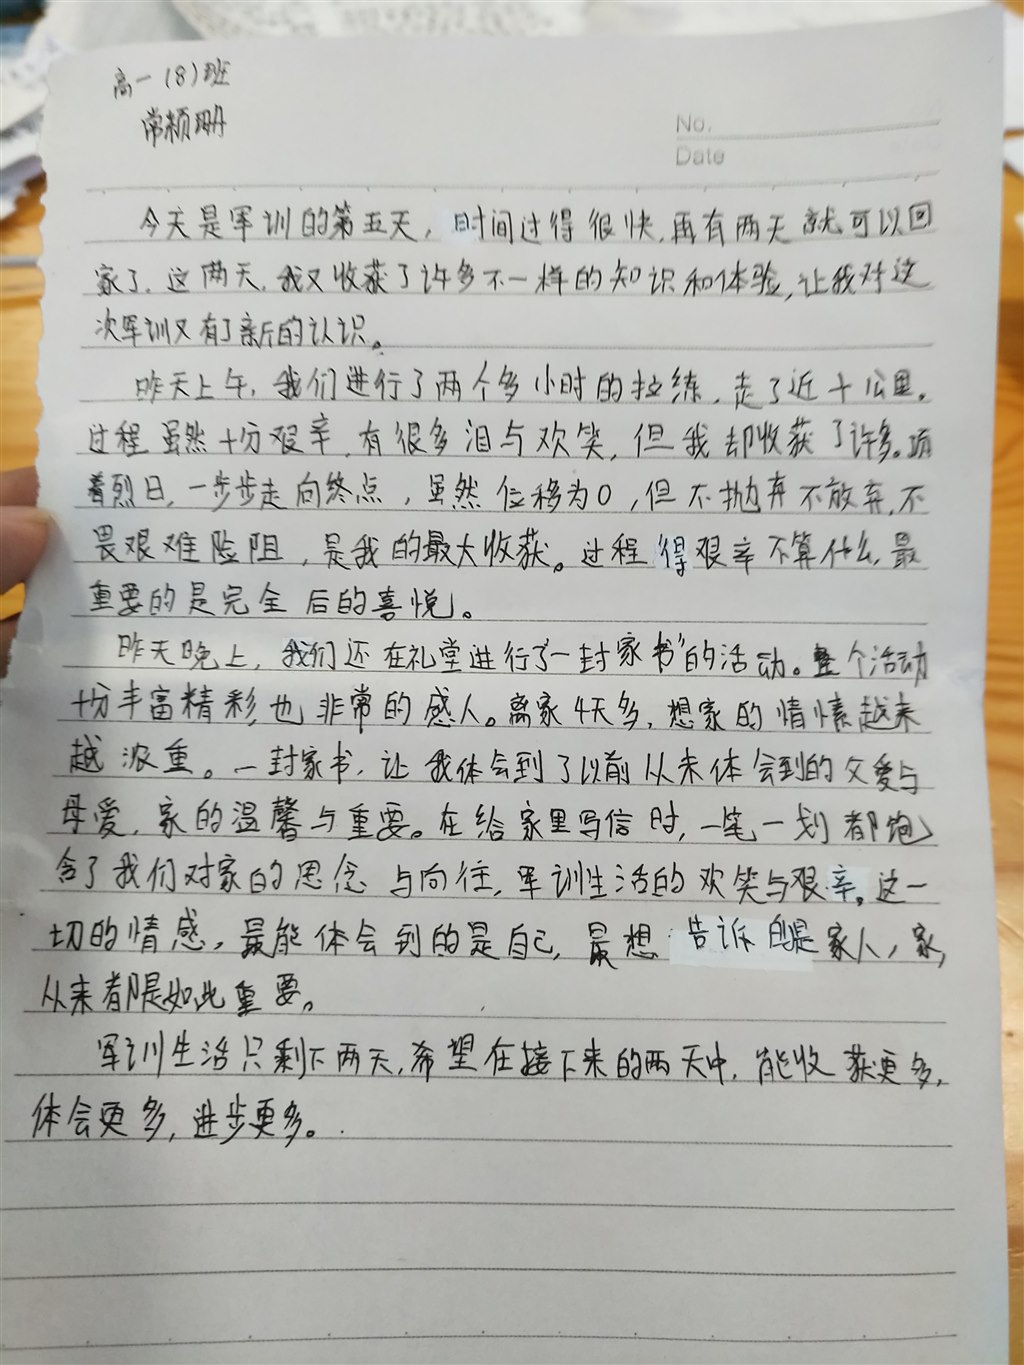 高一(8)班
常颖珊
No.
Date
今天是军训的第五天，时间过得很快,再有两天就可以回
家了．这两天,我又收获了许多不一样的知识和体验,让我对这
次军训又有了新的认识。
昨天上午,我们进行了两个多小时的拉练．走了近十公里。
过程虽然十分艰辛,有很多泪与欢笑,但我却收获了许多。顶
着烈日,一步步走向终点，虽然位移为0,但不抛弃不放弃,不
畏艰难险阻，是我的最大收获。过程得艰辛不算什么,最
重要的是完全后的喜悦。
昨天晚上,我们还在礼堂进行了“一封家书”的活动。整个活动
十分丰富精彩,也非常的感人。离家4天多,想家的情愫越来
越浓重。一封家书,让我体会到了以前从未体会到的父爱与
母爱,家的温馨与重要。在给家里写信时,一笔一划都饱
含了我们对家的思念与向往,军训生活的欢笑与艰辛。这一
切的情感，最能体会到的是自己,最想告诉的是家人，家,
从来都是如此重要。
军训生活只剩下两天,希望在接下来的两天中,能收获更多,
体会更多,进步更多。